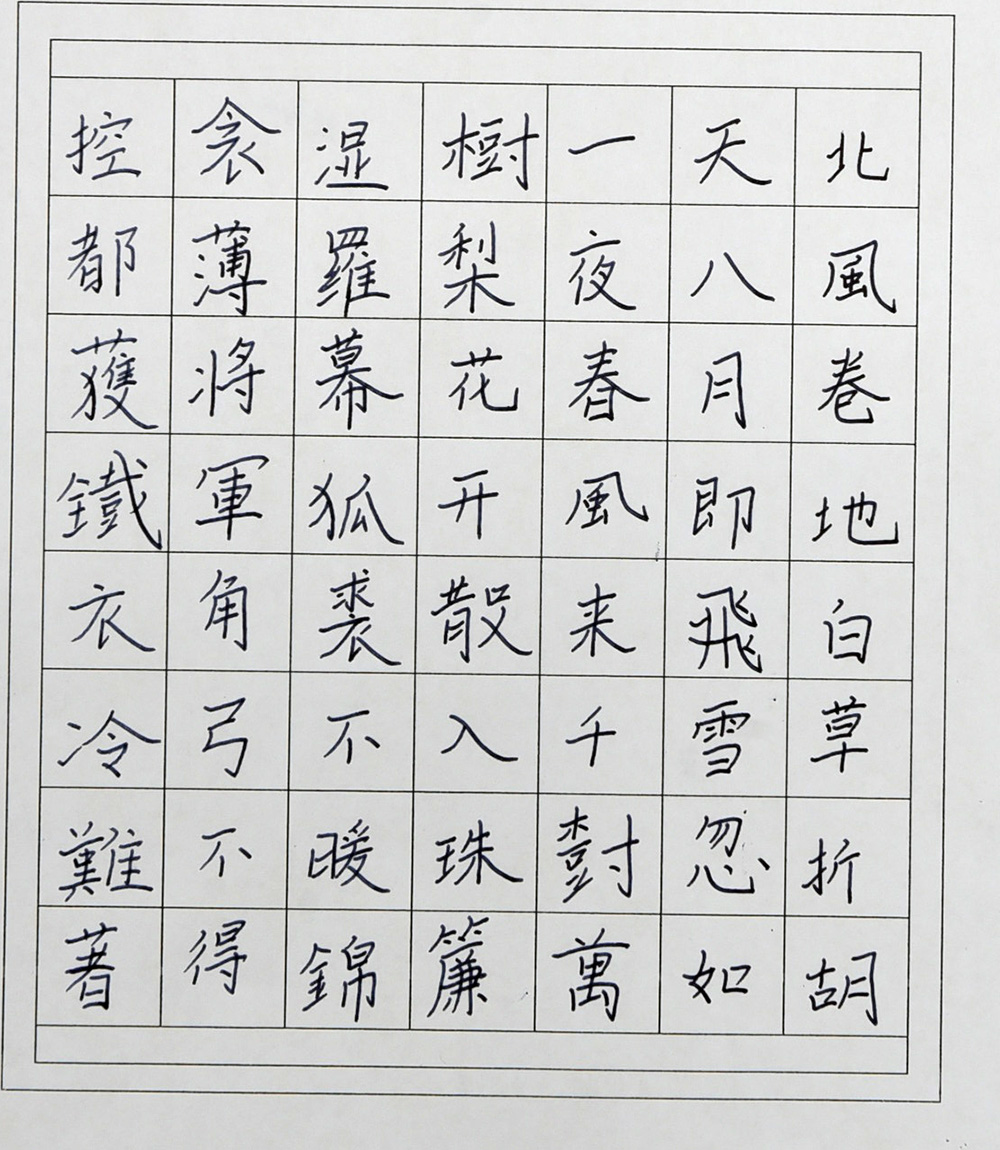 北風卷地白草折胡
天八月即飛雪忽如
一夜春風来千樹萬
樹梨花开散入珠簾
湿羅幕狐裘不暖錦
衾薄将軍角弓不得
控都獲鐵衣冷難著